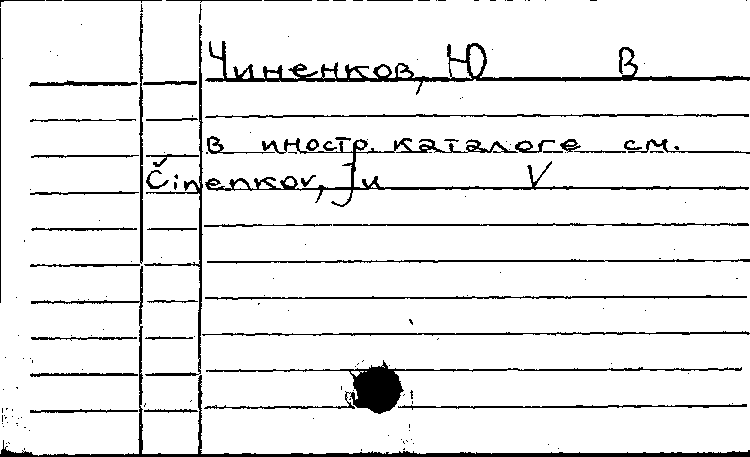 Чиненков, Ю В
в иностр. каталоге см.
Činenkov, Ju V